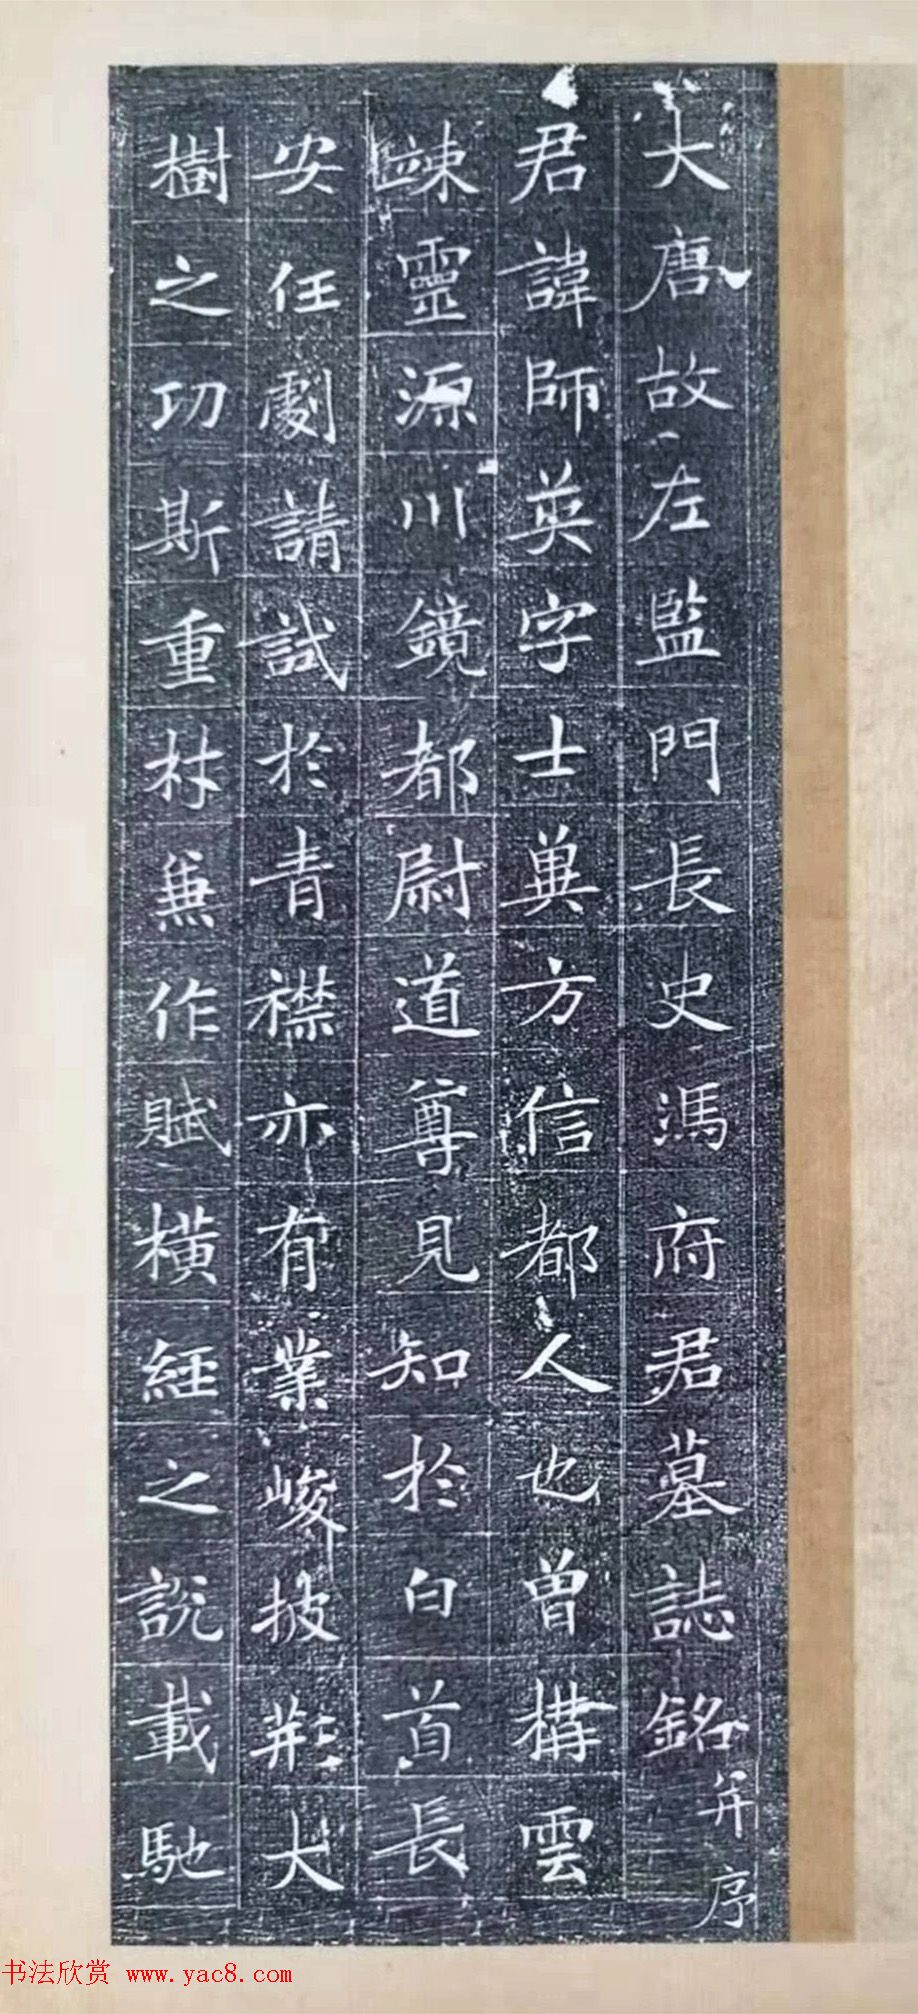 大唐故左監門長史馮府君墓誌銘并序
君諱師英字士㒞方信都人也曾構雲
竦靈源川鏡都尉道尊見知於白首長
安任劇請試於青襟亦有業峻披荊大
樹之功斯重材兼作賦橫經之說載馳
书法欣赏 www.yac8.com